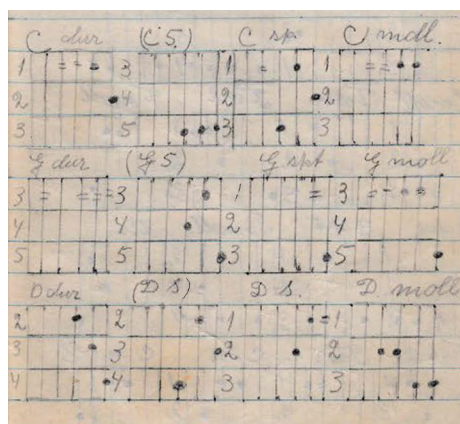 C dur (C 5.) C sp C moll.
1 3 1 1
2 4 2 2
3 5 3 3
G dur (G 5) G spt G moll
3 3 1 3
4 4 2 4
5 5 3 5
D dur (D 5) D s. D moll
2 2 1 1
3 3 2 2
4 4 3 3